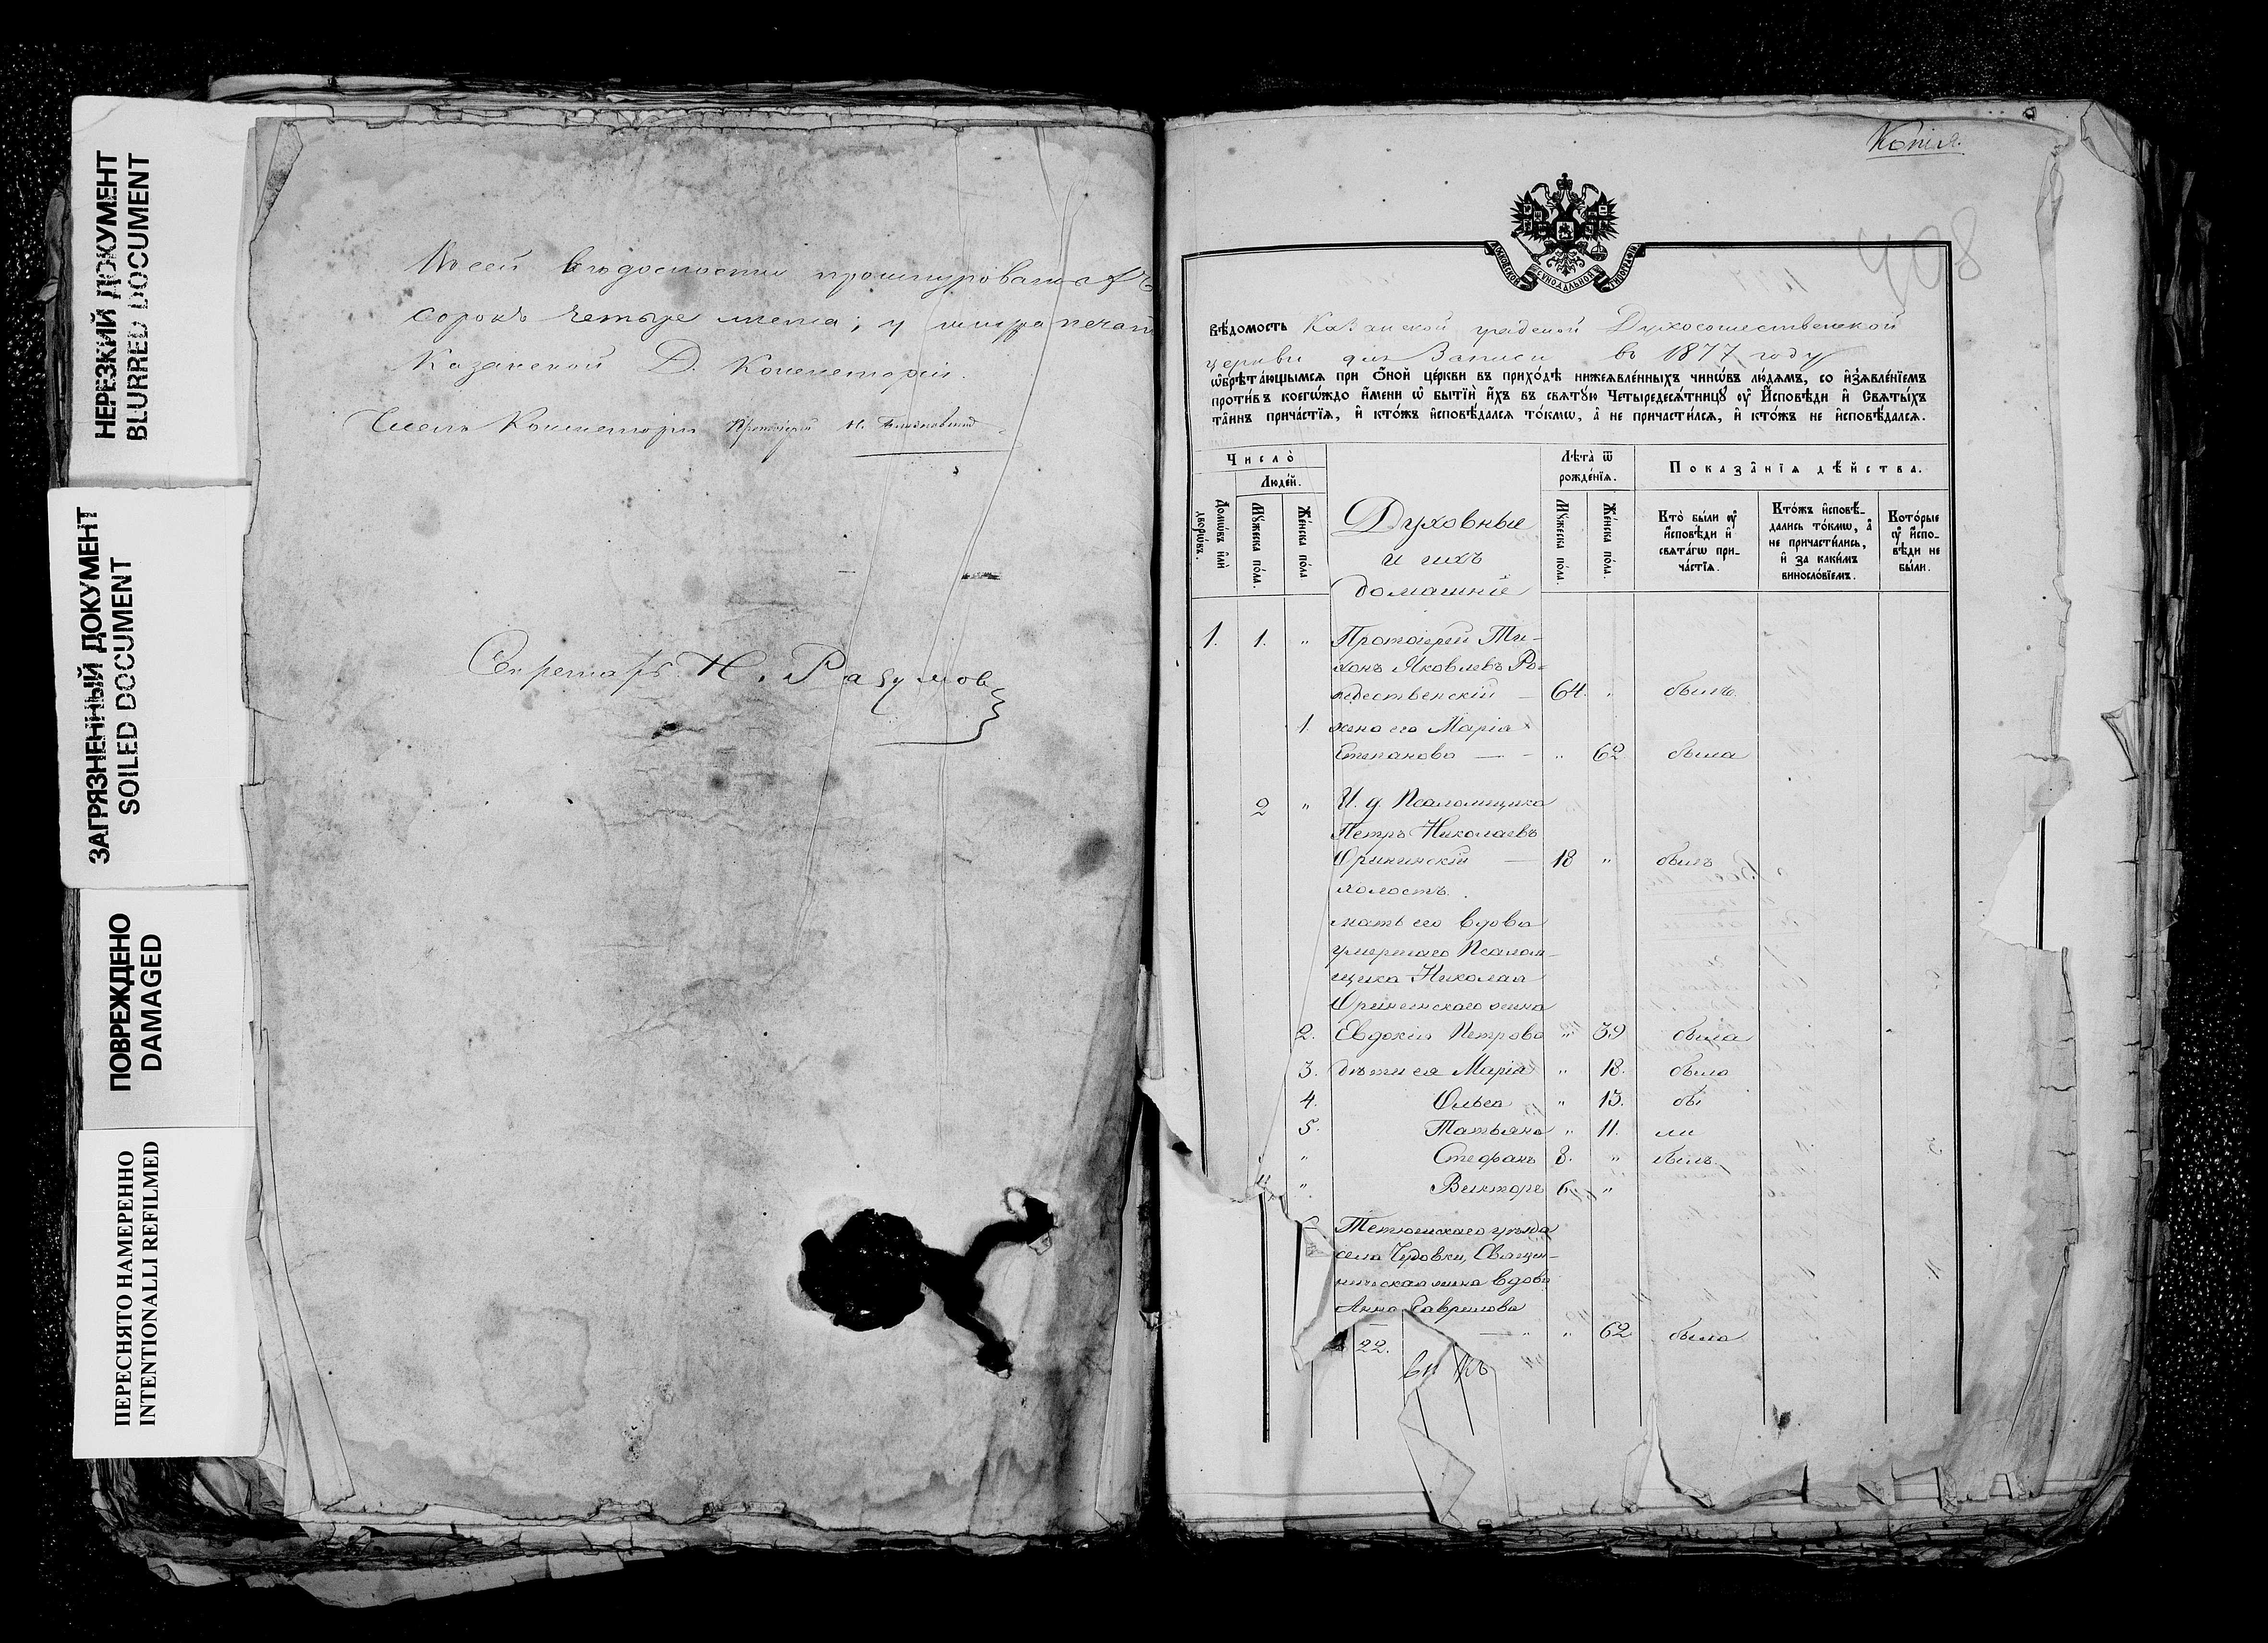 НЕРЕЗКИЙ ДОКУМЕНТ
BLURRED DOCUMENT
ЗАГРЯЗНЕННЫЙ ДОКУМЕНТ
SOILED DOCUMENT
ПОВРЕЖДЕНО
DAMAGED
ПЕРЕСНЯТО НАМЕРЕННО
INTENTIONALLI REFILMED
сорокъ четыре листа; у шнура печать
Казанской Д. Консисторіи.
Членъ Консисторіи Протоіерей
Секретарь Н. Разумов
Копія.
408
МОСКОВСКОЙ СѴНОДАЛЬНОЙ ТѴПОГРАФІИ
Вѣ́домость Казанской градской Духосошественской
церкви для Записи въ 1877 году
ѡ҆брѣта́ющымсѧ при ѻ҆́ной це́ркви въ прихо́дѣ нижеѧвле́нныхъ чинѡ́въ лю́дѧмъ, со и҆з̾ѧвле́нїемъ
проти́въ коегѡ́ждо и҆́мени ѡ҆ бытїѝ и҆́хъ въ свѧту́ю Четыредесѧ́тницу ᲂу҆ И҆́сповѣди и҆ Свѧты́хъ
та̑инъ прича́стїѧ, и҆ кто́жъ и҆сповѣ́далсѧ то́кмѡ, а҆ не причасти́лсѧ, и҆ кто́жъ не и҆сповѣ́далсѧ.
Число̀
Люде́й.
Домѡ́въ и҆лѝ дворѡ́въ.
Му́жеска по́ла.
Же́нска по́ла
Духовные
и ихъ
домашніе
Лѣ́та ѿ рожде́нїѧ.
Му́жеска по́ла.
Же́нска по́ла.
Показа̑нїѧ дѣ́йства.
Кто̀ бы́ли ᲂу҆ и҆́сповѣди и҆ свѧта́гѡ причастїѧ.
Кто́жъ и҆сповѣ́дались то́кмѡ, а҆ не причасти́лись, и҆ за каки́мъ винословїемъ.
Кото́рые ᲂу҆ и҆́споовѣди не бы́ли.
1. 1. " Протоіерей Ти-
хонъ Яковлевъ Ро-
ждественскій — 64. " былъ.
1. жена его Марія
Степанова — " 62 была
2 " И. д. Псаломщика
Петръ Николаевъ
Орининскій — 18 " былъ
холостъ.
мать его вдова
умершаго Псалом-
щика Николая
Орининскаго жена
2. Евдокія Петрова " 39 была
3. дѣти ея Марія " 18. была
4. Ольга " 13.
5. Татьяна " 11.
" Стефанъ 8. " былъ
" Викторъ 6 "
Тетюшскаго уѣзда
села Священ-
ническая жена вдова
Анна Гаврилова
— " 62 была
22.